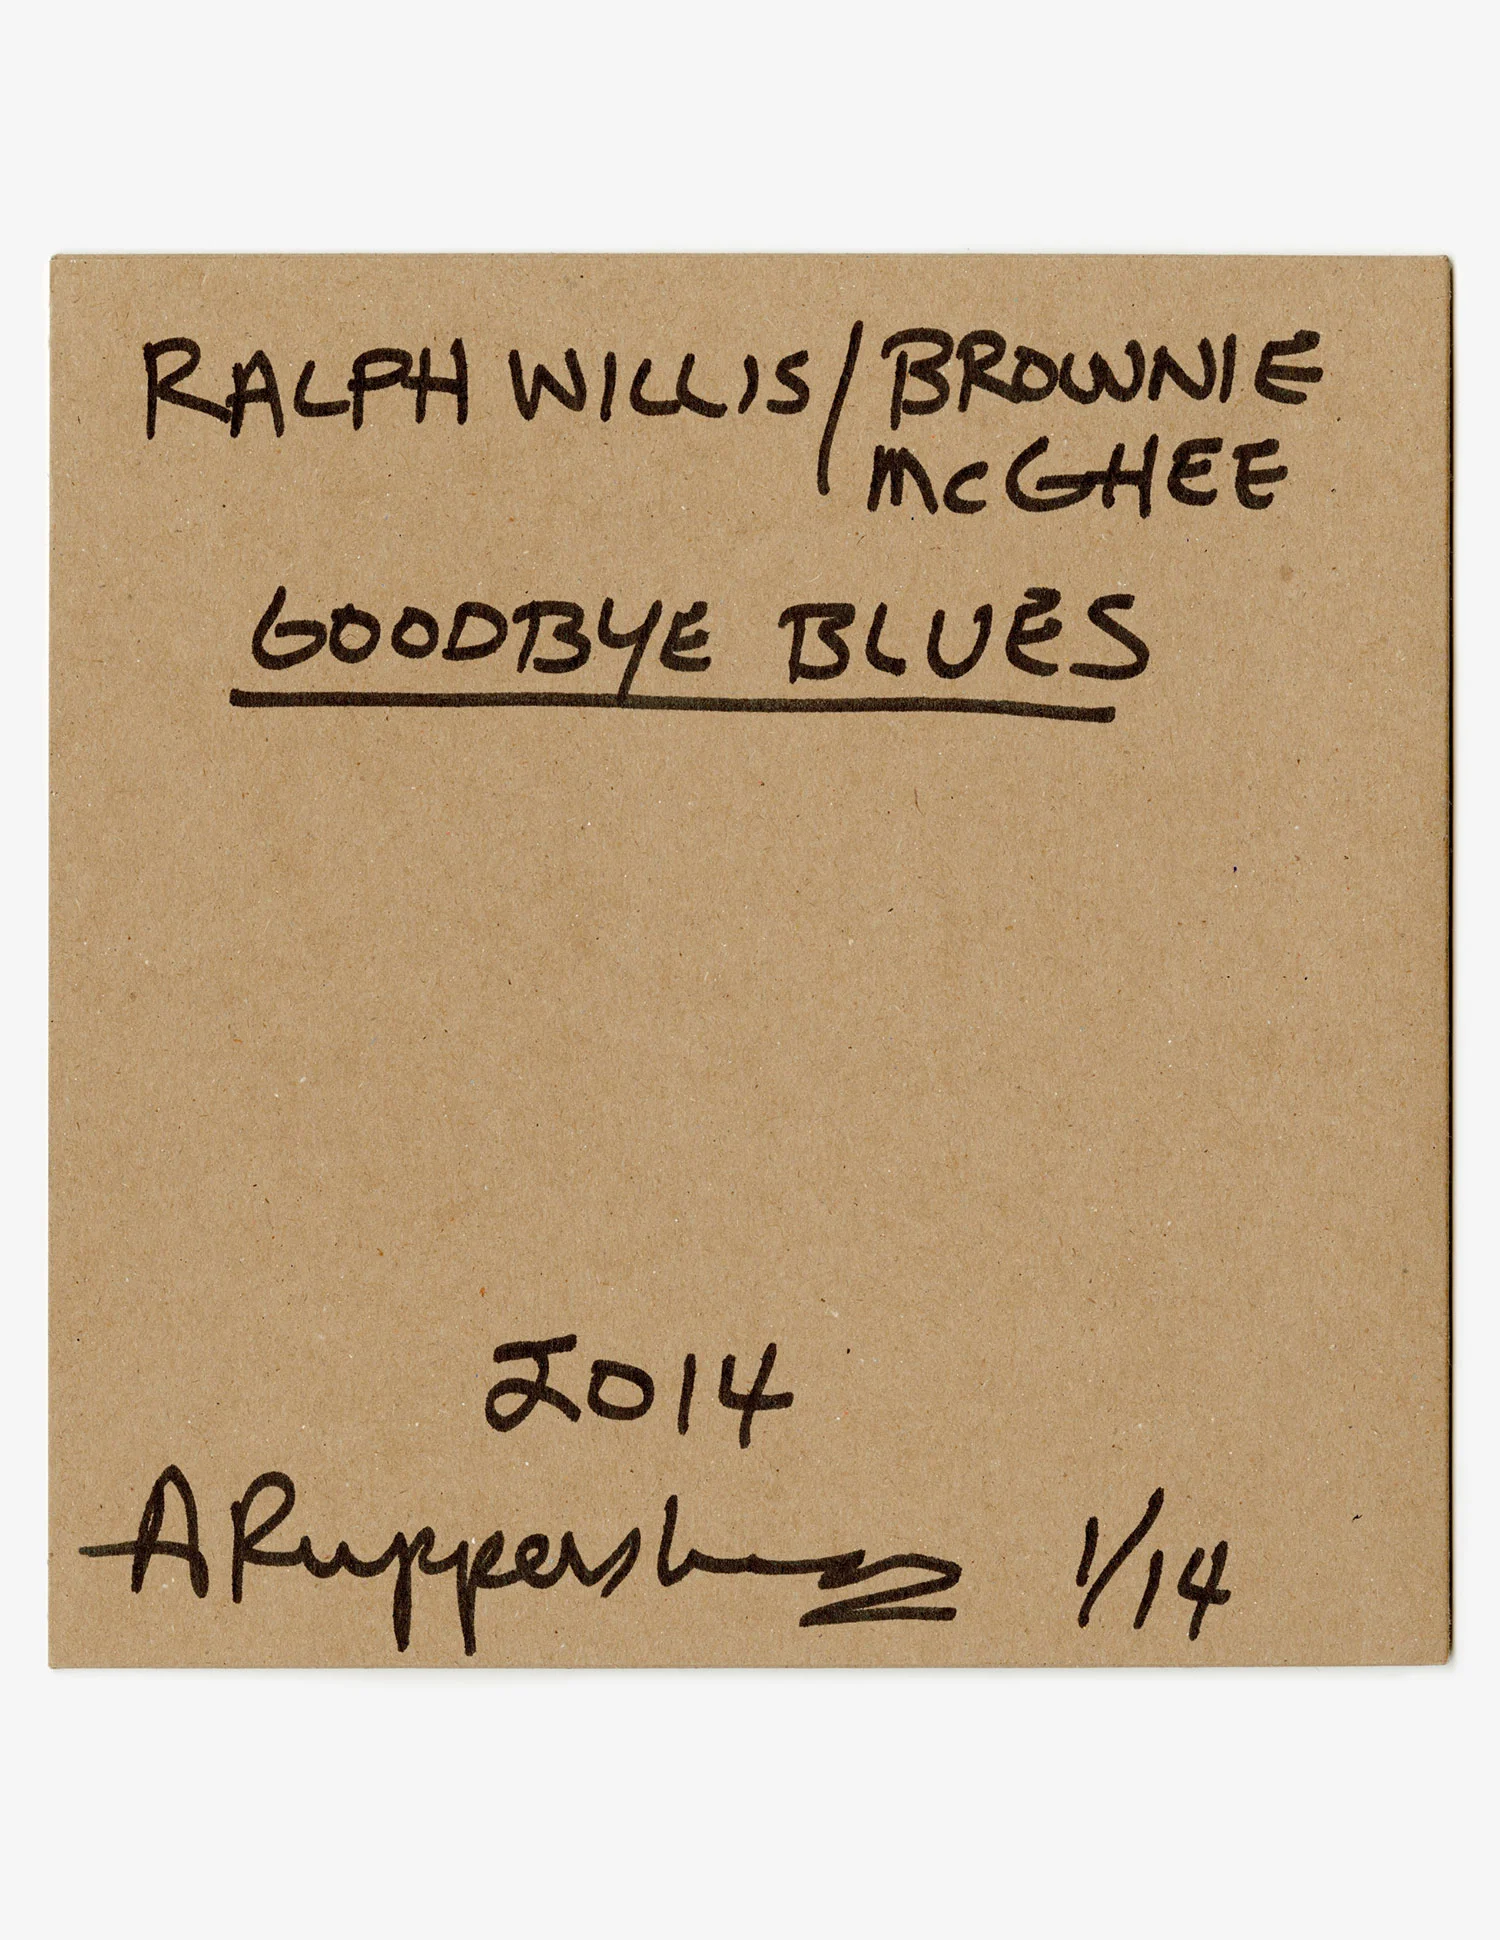 RALPH WILLIS / BROWNIE
McGHEE
GOODBYE BLUES
2014
A Ruppersberg 1/14